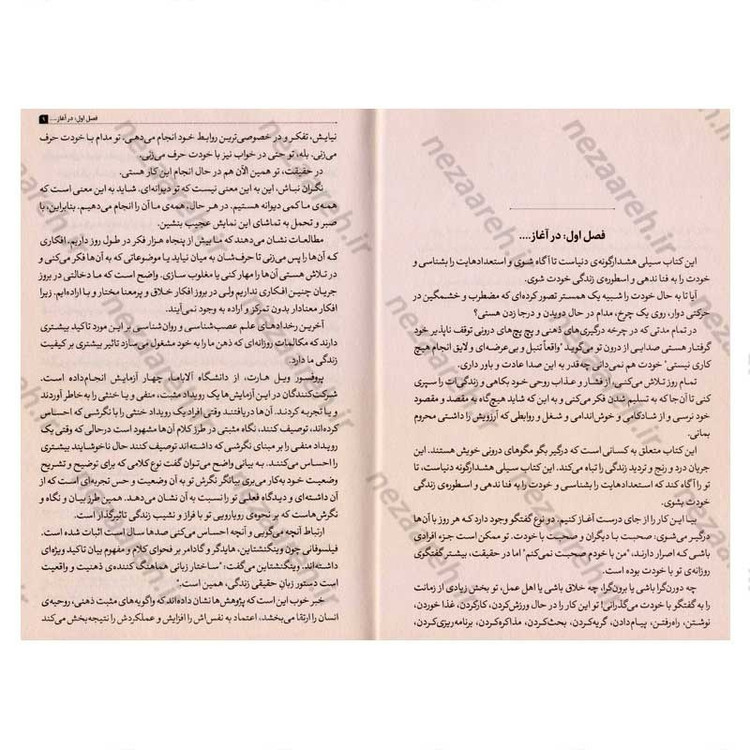 فصل اول: در آغاز....
این کتاب سیلی هشدارگونه‌ی دنیاست تا آگاه شوی و استعدادهایت را بشناسی و
خودت را به فنا ندهی و اسطوره‌ی زندگی خودت شوی.
آیا تا به حال خودت را شبیه یک همستر تصور کرده‌ای که مضطرب و خشمگین در
حرکتی دوار، روی یک چرخ، مدام در حال دویدن و درجا زدن هستی؟
در تمام مدتی که در چرخه درگیری‌های ذهنی و پچ پچ‌های درونی توقف ناپذیر خود
گرفتار هستی صدایی از درون تو می‌گوید "واقعاً تنبل و بی‌عرضه‌ای و لایق انجام هیچ
کاری نیستی" خودت هم نمی‌دانی چه‌قدر به این صدا عادت و باور داری.
تمام روز تلاش می‌کنی، از فشار و عذاب روحی خود بکاهی و زندگی راحت را سپری
کنی تا آن‌جا که به تسلیم شدن فکر می‌کنی و به این که شاید هیچ‌گاه به مقصد و مقصود
خود نرسی و از شادکامی و خوش‌اندامی و شغل و روابطی که آرزویش را داشتی محروم
بمانی.
این کتاب متعلق به کسانی است که درگیر بگو مگوهای درونی خویش هستند. این
جریان درد و رنج و تردید زندگی را تباه می‌کند. این کتاب سیلی هشدارگونه دنیاست، تا
تو را آگاه کند که استعدادهایت را بشناسی و خودت را به فنا ندهی و اسطوره‌ی زندگی
خودت بشوی.
بیا این کار را از جای درست آغاز کنیم. دو نوع گفتگو وجود دارد که هر روز با آن‌ها
درگیر می‌شوی: صحبت با دیگران و صحبت با خودت. تو ممکن است جزء افرادی
باشی که اصرار دارند، "من با خودم صحبت نمی‌کنم" اما در حقیقت، بیشتر گفتگوی
روزانه‌ی تو با خودت بوده است.
چه درون‌گرا باشی یا برون‌گرا، چه خلاق باشی یا اهل عمل، تو بخش زیادی از زمانت
را به گفتگو با خودت می‌گذرانی! تو این کار را در حال ورزش‌کردن، کارکردن، غذا خوردن،
نوشتن، راه‌رفتن، پیام‌دادن، گریه‌کردن، بحث‌کردن، مذاکره‌کردن، برنامه‌ریزی‌کردن،
فصل اول: در آغاز.... ۹
نیایش، تفکر و در خصوصی‌ترین روابط خود انجام می‌دهی، تو مدام با خودت حرف
می‌زنی. بله، تو حتی در خواب نیز با خودت حرف می‌زنی.
در حقیقت، تو همین الآن هم در حال انجام این کار هستی.
نگران نباش، این به این معنی نیست که تو دیوانه‌ای. شاید به این معنی است که
همه‌ی ما کمی دیوانه هستیم. در هر حال، همه‌ی ما آن را انجام می‌دهیم. بنابراین، با
صبر و تحمل به تماشای این نمایش عجیب بنشین.
مطالعات نشان می‌دهند که ما بیش از پنجاه هزار فکر در طول روز داریم. افکاری
که آن‌ها را پس می‌زنی تا حرف‌شان به میان نیاید یا موضوعاتی که به آن‌ها فکر می‌کنی و
در تلاش هستی آن‌ها را مهار کنی یا مغلوب سازی. واضح است که ما دخالتی در بروز
جریان چنین افکاری نداریم ولی در بروز افکار خلاق و پرمعنا مختار و با اراده‌ایم. زیرا
افکار معنادار بدون تمرکز و اراده به وجود نمی‌آیند.
آخرین رخدادهای علم عصب‌شناسی و روان‌شناسی بر این مورد تاکید بیشتری
دارند که مکالمات روزانه‌ای که ذهن ما را به خود مشغول می‌سازد تاثیر بیشتری بر کیفیت
زندگی ما دارد.
پروفسور ویل هارت، از دانشگاه آلاباما، چهار آزمایش انجام‌داده است.
شرکت‌کنندگان در این آزمایش‌ها یک رویداد مثبت، منفی و یا خنثی را به خاطر آوردند
و یا تجربه کردند. آن‌ها دریافتند وقتی افراد یک رویداد خنثی را با نگرشی که احساس
کرده‌اند، توصیف کنند، نگاه مثبتی در طرز کلام آن‌ها مشهود است درحالی که وقتی یک
رویداد منفی را بر مبنای نگرشی که داشته‌اند توصیف کنند حال ناخوشایند بیشتری
را احساس می‌کنند. به بیانی واضح می‌توان گفت نوع کلامی که برای توضیح و تشریح
وضعیت خود به‌کار می‌بری بیانگر نگرش تو به آن وضعیت و حس تجربه‌ای است که از
آن داشته‌ای و دیدگاه فعلی تو را نسبت به آن نشان می‌دهد. همین طرز بیان و نگاه و
نگرش هاست که بر نحوه‌ی رویارویی تو با فراز و نشیب زندگی تاثیرگذار است.
ارتباط آنچه می‌گویی و آنچه احساس می‌کنی صدها سال است اثبات شده است.
فیلسوفانی چون ویتگنشتاین، هایدگر و گادامر بر فحوای کلام و مفهوم بیان تاکید ویژه‌ای
داشته‌اند. ویتگنشتاین می‌گفت: "ساختار زبانی هماهنگ کننده‌ی ذهنیت و واقعیت
است دستور زبانِ حقیقی زندگی، همین است."
خبر خوب این است که پژوهش‌ها نشان داده‌اند که واگویه‌های مثبت ذهنی، روحیه‌ی
انسان را ارتقا می‌بخشد، اعتماد به نفس‌اش را افزایش و عملکردش را نتیجه‌بخش می‌کند
nezaareh.ir